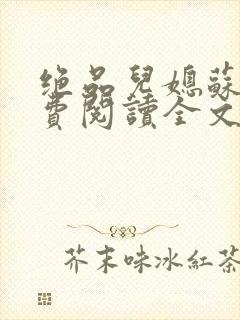 绝品兒媳蘇
費閱讀全文
芥末味冰紅茶